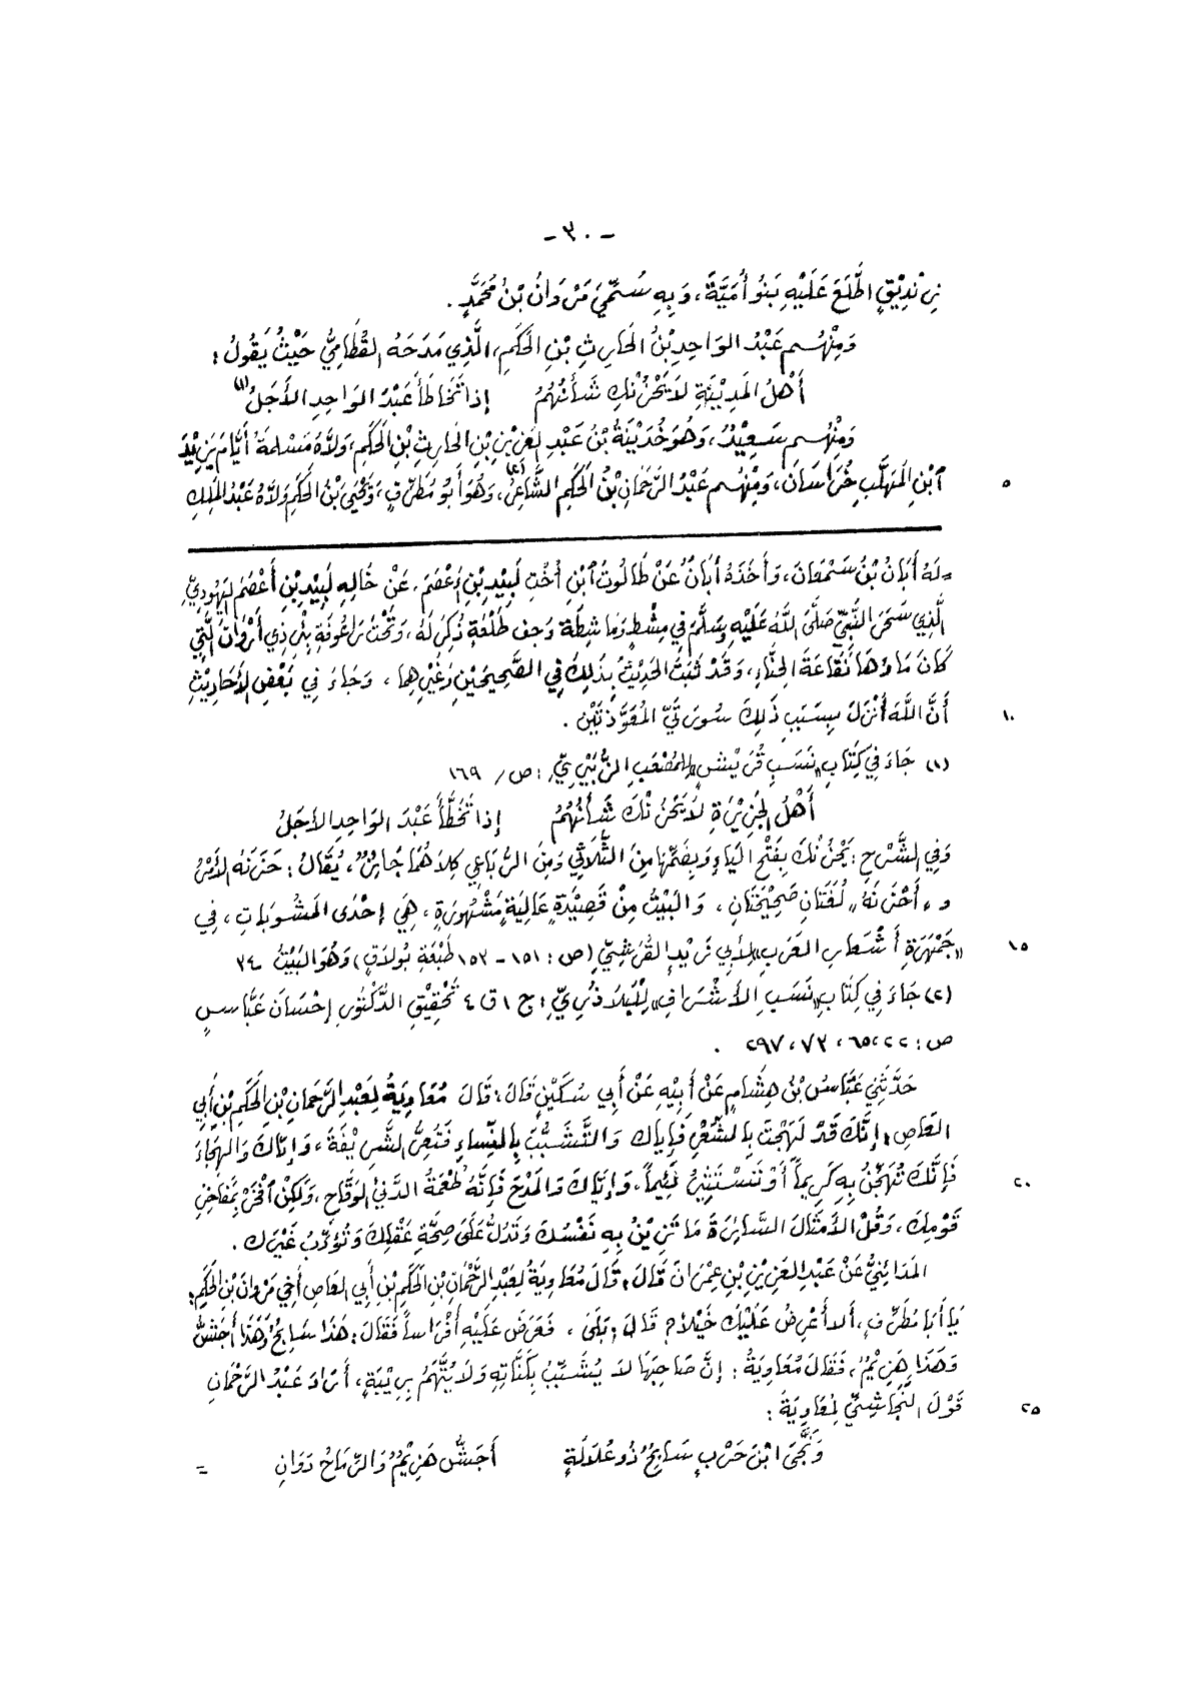 - ٣٠ -
زِنْدِيْقٍ اطَّلَعَ عَلَيْهِ بَنُو أُمَيَّةَ، وَبِهِ سُمِّيَ مَرْوَانُ بْنُ مُحَمَّدٍ .
وَمِنْهُم عَبْدُ الوَاحِدِ بْنُ الحَارِثِ بْنِ الحَكَمِ، الَّذِي مَدَحَهُ القُطَامِيُّ حَيْثُ يَقُولُ :
أَهْلُ المَدِيْنَةِ لاَ يَحْزُنْكِ شَأْنُهُمُ إذا تَخَاطَأَ عَبْدَ الوَاحِدِ الأَجَلُ (١)
وَمِنْهُم سَعِيْدٌ، وَهُوَ خُذَيْنَةُ بْنُ عَبْدِ العَزِيْزِ بْنِ الحَارِثِ بْنِ الحَكَمِ، وَلاَّهُ مَسْلَمَةُ أَيَّامَ يَزِيْدَ
٥ ٱبْنِ المُهَلَّبِ خُرَاسَانَ، وَمِنْهُم عَبْدُ الرَّحْمَانِ بْنُ الحَكَمِ الشَّاعِرُ (٢)، وَهُوَ أَبُو مُطَرِّفٍ، وَيَحْيَى بْنُ الحَكَمِ وَلاَّهُ عَبْدُ المَلِكِ
= لَهُ أَبَانُ بْنُ سَمْعَانَ، وَأَخَذَهُ أَبَانُ عَنْ طَالُوتَ ٱبْنِ أُخْتِ لَبِيْدِ بْنِ أَعْصَمَ، عَنْ خَالِهِ لَبِيْدِ بْنِ أَعْصَمَ اليَهُودِيِّ
الَّذِي سَحَرَ النَّبِيَّ صَلَّى اللَّهُ عَلَيْهِ وَسَلَّمَ فِي مِشْطٍ وَمَاشِطَةٍ وَجف طَلْعَةٍ ذَكِرٍ لَهُ، وَتَحْتَ رَاعُوفَةِ بِئْرِ ذِي أَرْوَانَ الَّتِي
كَانَ مَاؤهَا نُقَاعَةَ الحِنَّاءِ، وَقَدْ ثَبَتَ الحَدِيْثُ بِذَلِكَ فِي الصَّحِيحَيْنِ وَغَيْرِهِمَا، وَجَاءَ فِي بَعْضِ الأَحَادِيْثِ
١٠ أَنَّ اللَّهَ أَنْزَلَ بِسَبَبِ ذَلِكَ سُورَتَيِّ المُعَوَّذَتَيْنِ .
(١) جَاءَ فِي كِتَابِ «نَسَبِ قُرَيْشٍ» لِلمُصْعَبِ الزُّبَيْرِيِّ : ص / ١٦٩
أَهْلُ الجَزِيْرَةِ لاَ يَحْزُنْكَ شَأْنُهُمُ إذا تَخَطَّأَ عَبْدَ الوَاحِدِ الأَجَلُ
وَفِي الشَّرْحِ : يَحْزُنْكَ بِفَتْحِ اليَاءِ وَبِضَمِّهَا مِنَ الثُّلاَثِي وَمِنَ الرُّبَاعِي كِلاَهُمَا جَائِزٌ، يُقَالُ : حَزَنَهُ الأَمْرُ
و «أَحْزَنَهُ» لُغَتَانِ صَحِيْحَتَانِ، وَالبَيْتُ مِنْ قَصِيْدَةٍ عَالِيَةٍ مَشْهُورَةٍ، هِيَ إحْدَى المَشُوبَاتِ، فِي
١٥ «جَمْهَرَةِ أَشْعَارِ العَرَبِ» لأَبِي زَيْدٍ القُرَشِيِّ (ص : ١٥١ - ١٥٣ طَبْعَةِ بُولاَقٍ) وَهُوَ البَيْتُ ٣٤
(٢) جَاءَ فِي كِتَابِ «نَسَبِ الأَشْرَافِ» لِلْبَلاَذُرِيِّ : ج ١ ق ٤ تَحْقِيْقِ الدُّكْتُورِ إحْسَان عَبَّاسٍ
ص : ٢٢، ٦٥، ٧٣، ٢٩٧ .
حَدَّثَنِي عَبَّاسُ بْنُ هِشَامٍ عَنْ أَبِيْهِ عَنْ أَبِي سُكَيْنٍ قَالَ : قَالَ مُعَاوِيَةُ لِعَبْدِ الرَّحْمَانِ بْنِ الحَكَمِ بْنِ أَبِي
العَاصِ : إنَّكَ قَدْ لَهِجْتَ بِالشِّعْرِ فَإِيَّاكَ وَالتَّشَبُّبَ بِالنِّسَاءِ فَتَعُرَّ الشَّرِيْفَةَ، وَإِيَّاكَ وَالهِجَاءَ
٢٠ فَإِنَّكَ تُهَجِّنُ بِهِ كَرِيماً أَوْ تَسْتَثِيْرُ لَئِيْماً، وَإِيَّاكَ وَالمَدْحَ فَإِنَّهُ طُعْمَةُ الدَّنِيْءِ الوَقَاحِ، وَلَكِنْ ٱفْخَرْ بِمَفَاخِرِ
قَوْمِكَ، وَقُلْ الأَمْثَالَ السَّائِرَةَ مَا تَزِيْنُ بِهِ نَفْسُكَ وَتَدُلُّ عَلَى صِحَّةِ عَقْلِكَ وَتُؤَدِّبُ غَيْرَكَ .
المَدَائِنِيُّ عَنْ عَبْدِ العَزِيْزِ بْنِ عِمْرَانَ قَالَ : قَالَ مُعَاوِيَةُ لِعَبْدِ الرَّحْمَانِ بْنِ الحَكَمِ بْنِ أَبِي العَاصِ أَخِي مَرْوَانَ بْنِ الحَكَمِ :
يَا أَبَا مُطَرِّفٍ، أَلاَ أَعْرِضُ عَلَيْكَ خَيْلاً؟ قَالَ : بَلَى، فَعَرَضَ عَلَيْهِ أَفْرَاساً فَقَالَ : هَذَا سَابِحٌ وَهَذَا أَجَشُّ
وَهَذَا هَزِيْمٌ، فَقَالَ مُعَاوِيَةُ : إنَّ صَاحِبَهَا لاَ يُشَبِّبُ بِكَنَّاتِهِ وَلاَ يُتَّهَمُ بِرِيْبَةٍ، أَرَادَ عَبْدُ الرَّحْمَانِ
٢٥ قَوْلَ النَّجَاشِيِّ لِمُعَاوِيَةَ :
وَنَجَّى ابْنَ حَرْبٍ سَابِحٌ ذُو عُلاَلَةٍ أَجَشُّ هَزِيْمٌ وَالرِّمَاحُ دَوَانِ =